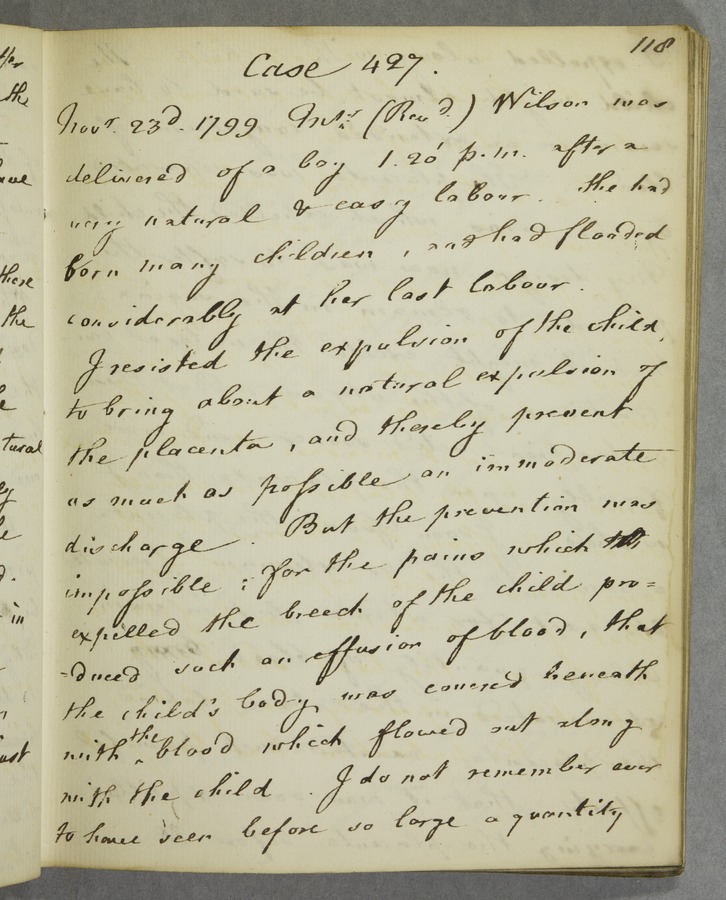 118
Case 427.
Novr. 23d. 1799 Mrs. (Revd.) Wilson was
delivered of a boy 1.20' p.m. after a
very natural & easy labour. She had
born many children, and had flooded
considerably at her last labour.
I resisted the expulsion of the child,
to bring about a natural expulsion of
the placenta, and thereby prevent
as much as possible an immoderate
discharge. But the prevention was
impossible: for the pains which
expelled the breech of the child pro=
=duced such an effusion of blood, that
the child's body was covered beneath
with the blood which flowed out along
with the child. I do not remember ever
to have seen before so large a quantity
ther
the
ave
there
the
tural
in
ust